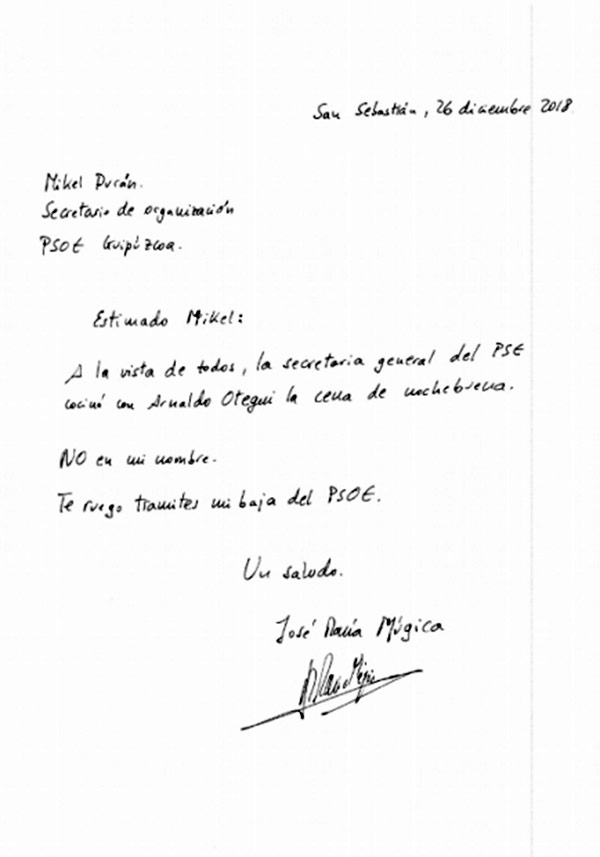 San Sebastián, 26 diciembre 2018.
Mikel Durán.
Secretario de organización
PSOE Guipúzcoa.
Estimado Mikel:
A la vista de todos, la secretaria general del PSE
cocinó con Arnaldo Otegui la cena de nochebuena.
NO en mi nombre.
Te ruego tramites mi baja del PSOE.
Un saludo.
José María Múgica